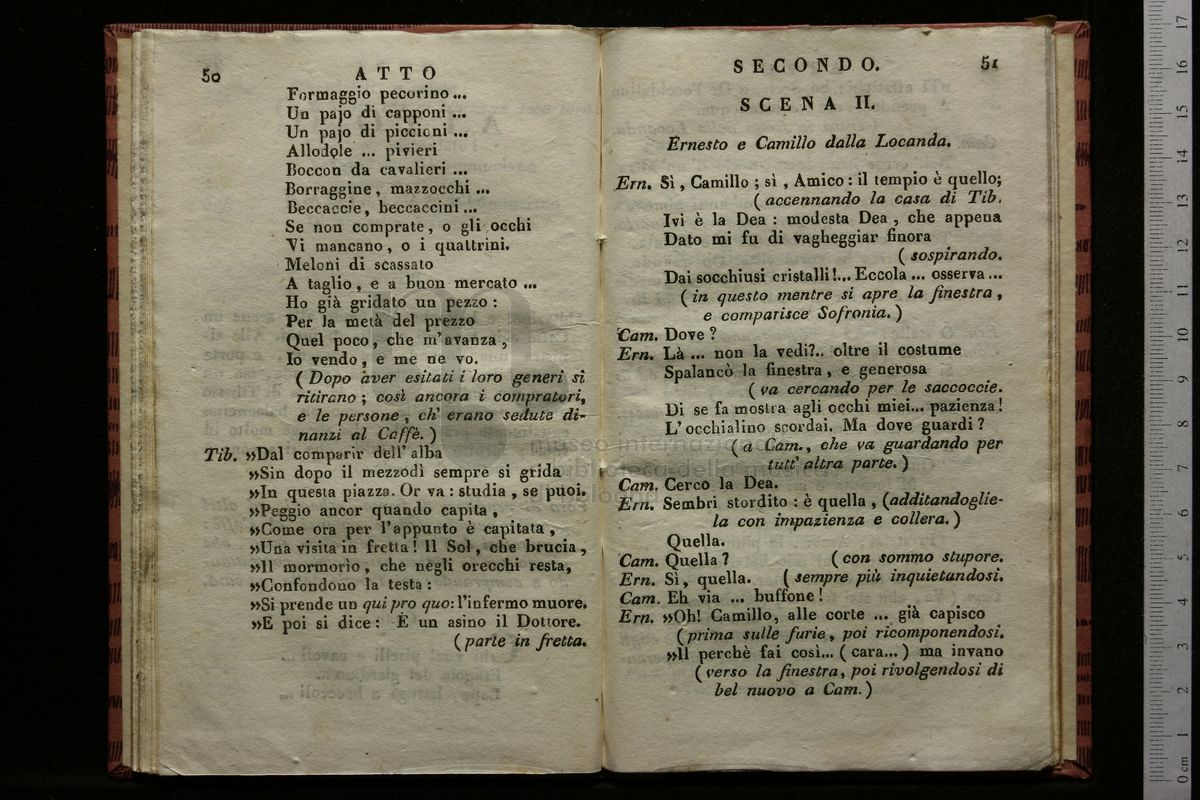 50
ATTO
Formaggio pecorino ...
Un pajo di capponi ...
Un pajo di piccioni ...
Allodole ... pivieri
Boccon da cavalieri ...
Borraggine, mazzocchi ...
Beccaccie, beccaccini ...
Se non comprate, o gli occhi
Vi mancano, o i quattrini.
Meloni di scassato
A taglio, e a buon mercato ...
Ho già gridato un pezzo:
Per la metà del prezzo
Quel poco, che m'avanza,
Io vendo, e me ne vo.
( Dopo aver esitati i loro generi si
ritirano; così ancora i compratori,
e le persone, ch' erano sedute di-
nanzi al Caffè. )
Tib. »Dal comparir dell' alba
»Sin dopo il mezzodì sempre si grida
»In questa piazza. Or va: studia, se puoi.
»Peggio ancor quando capita,
»Come ora per l'appunto è capitata,
»Una visita in fretta! Il Sol, che brucia,
»Il mormorio, che negli orecchi resta,
»Confondono la testa:
»Si prende un qui pro quo: l'infermo muore.
»E poi si dice: È un asino il Dottore.
( parte in fretta.
SECONDO.
51
SCENA II.
Ernesto e Camillo dalla Locanda.
Ern. Sì, Camillo; sì, Amico: il tempio è quello;
( accennando la casa di Tib.
Ivi è la Dea: modesta Dea, che appena
Dato mi fu di vagheggiar finora
( sospirando.
Dai socchiusi cristalli!... Eccola ... osserva ...
( in questo mentre si apre la finestra,
e comparisce Sofronia. )
Cam. Dove?
Ern. Là ... non la vedi?.. oltre il costume
Spalancò la finestra, e generosa
( va cercando per le saccoccie.
Di se fa mostra agli occhi miei... pazienza!
L'occhialino scordai. Ma dove guardi?
( a Cam., che va guardando per
tutt' altra parte. )
Cam. Cerco la Dea.
Ern. Sembri stordito: è quella, (additandoglie-
la con impazienza e collera. )
Quella.
Cam. Quella? ( con sommo stupore.
Ern. Sì, quella. ( sempre più inquietandosi.
Cam. Eh via ... buffone!
Ern. »Oh! Camillo, alle corte ... già capisco
( prima sulle furie, poi ricomponendosi.
»Il perchè fai così... ( cara...) ma invano
( verso la finestra, poi rivolgendosi di
bel nuovo a Cam. )
museo internazionale
biblioteca della musica